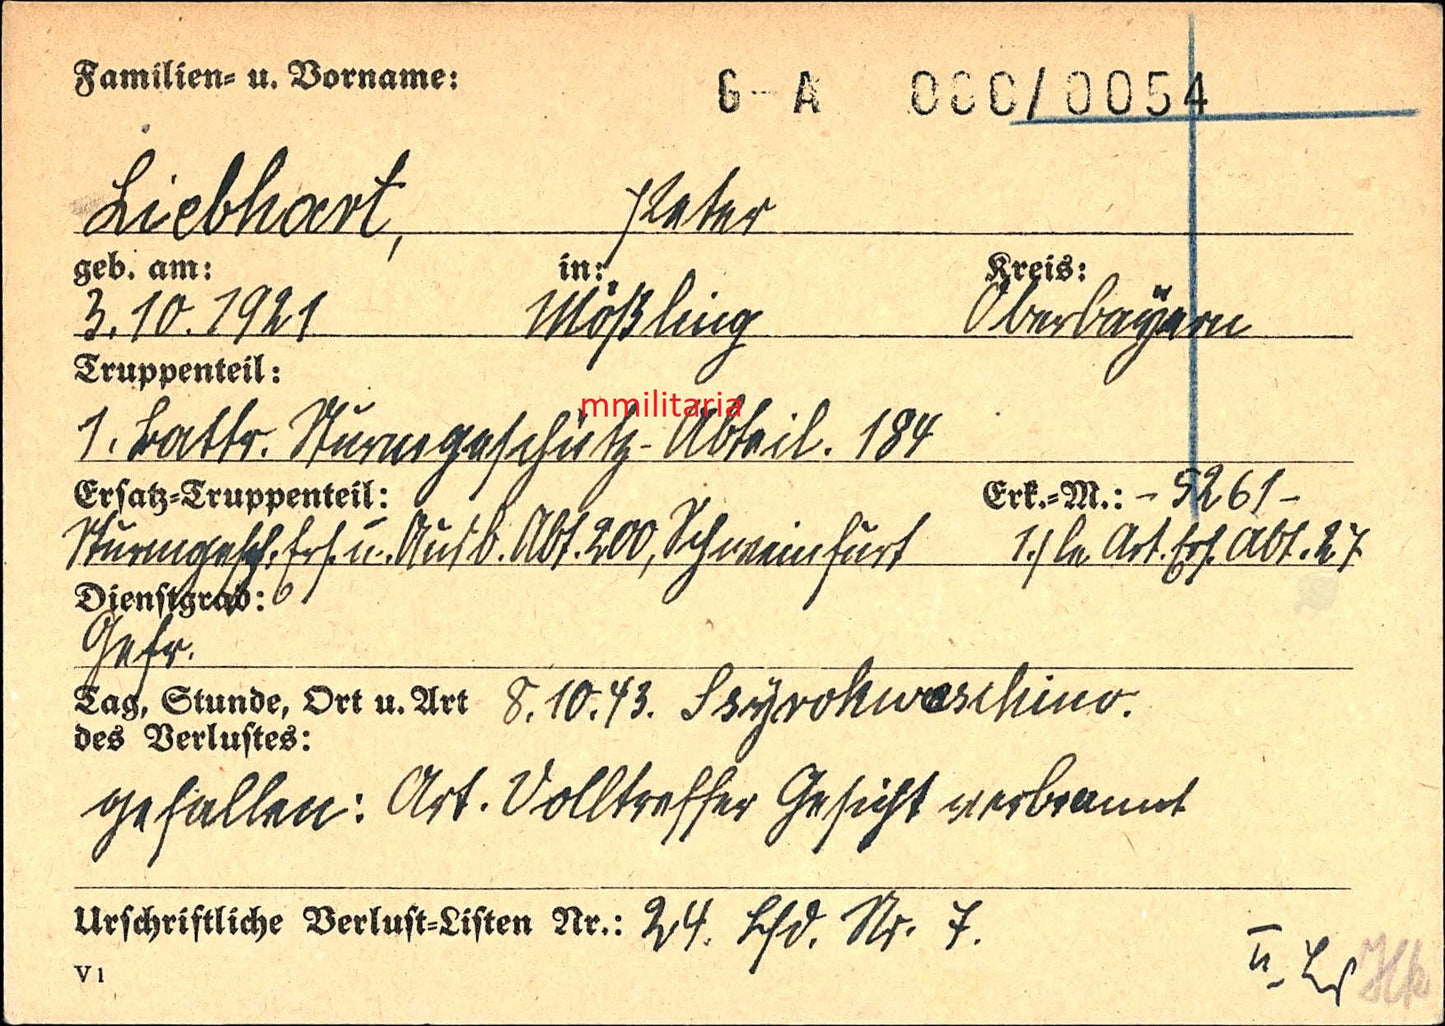 Familien- u. Vorname:
G-A 000/0054
Liebhart, Peter
geb. am: in: Kreis:
3.10.1921 Mößling Oberbayern
Truppenteil:
mmilitaria
1. Battr. Sturmgeschütz-Abteil. 184
Ersatz-Truppenteil: Erk.-M.: -5261-
Sturmgesch. Ers. u. Ausb. Abt. 200, Schweinfurt 1./le Art. Ers. Abt. 27
Dienstgrad:
Gefr.
Tag, Stunde, Ort u. Art 8.10.43.
des Verlustes:
gefallen: Art. Volltreffer Gesicht verbrannt
Urschriftliche Verlust-Listen Nr.: 24. Lfd. Nr. 7.
V1